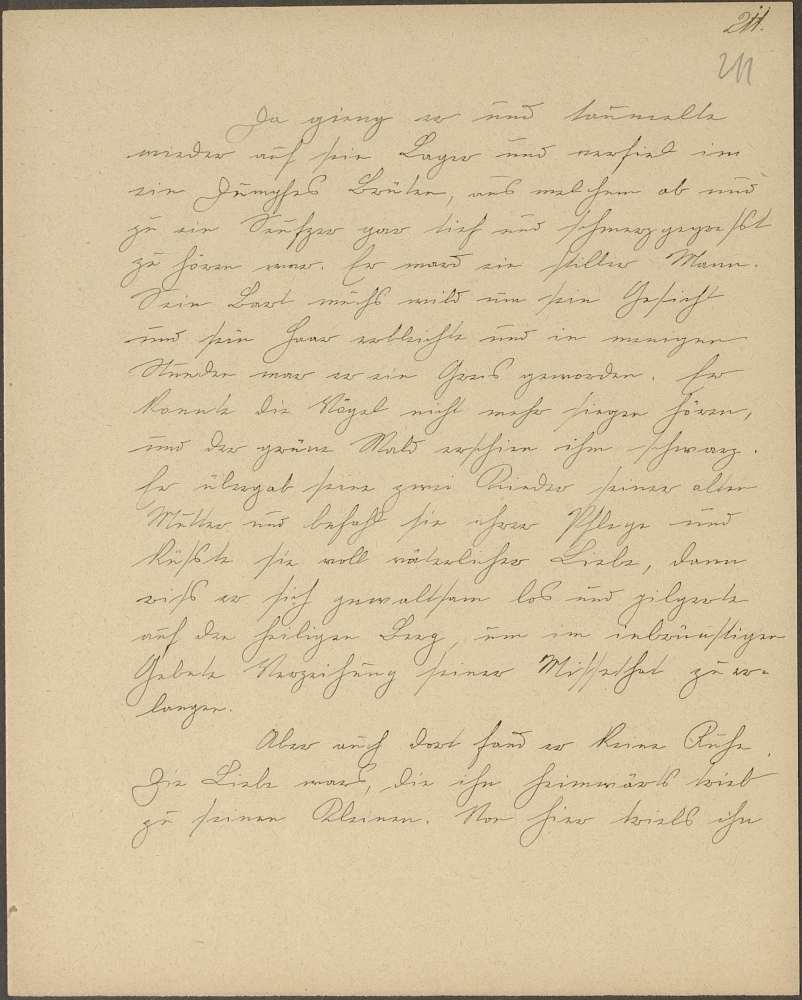 211.
211
Da gieng er und taumelte
wieder auf sein Lager und verfiel in
ein dumpfes Brüten, aus welchem ab und
zu ein Seufzer gar tief und schmerzgepresst
zu hören war. Er ward ein stiller Mann.
Sein Bart wuchs wild um sein Gesicht
und sein Haar erbleichte und in wenigen
Stunden war er ein Greis geworden. Er
konnte die Vögel nicht mehr singen hören,
und der grüne Wald erschien ihm schwarz.
Er übergab seine zwei Kinder seiner alten
Mutter und befahl sie ihrer Pflege und
küsste sie voll väterlicher Liebe, dann
riss er sich gewaltsam los und pilgerte
auf den heiligen Berg, um im inbrünstigen
Gebete Verzeihung seiner Missethat zu er-
langen.
Aber auch dort fand er keine Ruhe.
Die Liebe wars, die ihn heimwärts trieb
zu seinen Kleinen. Von hier triebs ihn